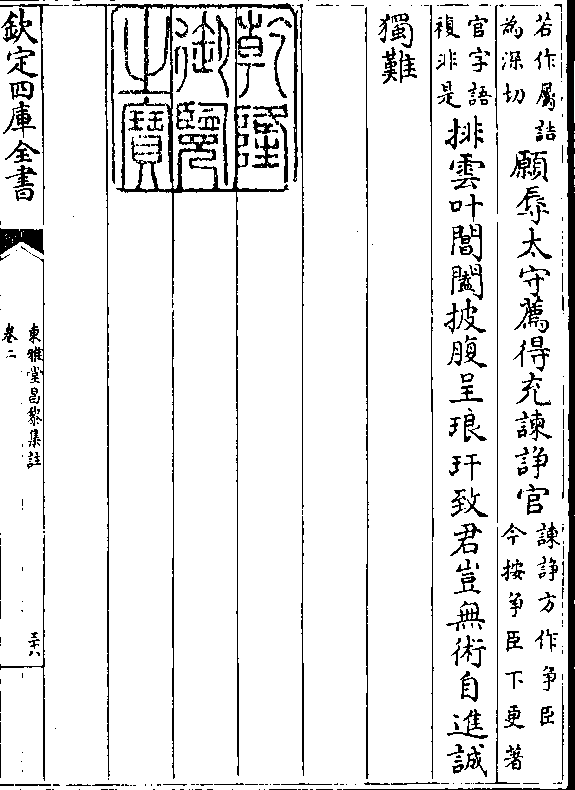 若作屬詰
為深切
願辱太守薦得充諫諍官
諫諍方作爭臣
今按爭臣下更著
官字語
複非是
排雲叫閶闔披腹呈琅玕致君豈無術自進誠
獨難
乾隆
御覽
之寶
欽定四庫全書
東雅堂昌黎集註
卷二